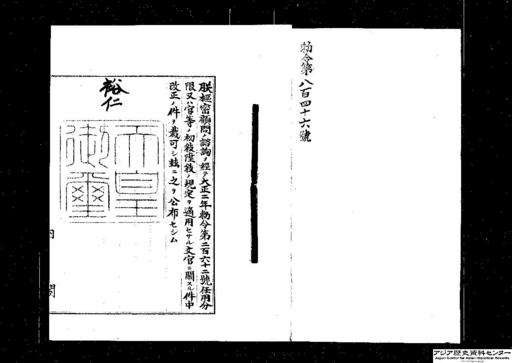 勅令第八百四十六號
朕樞密顧問ノ諮詢ヲ經テ大正二年勅令第二百六十二號任用分
限又ハ官等ノ初敍陞敍ノ規定ヲ適用セサル文官ニ關スル件中
改正ノ件ヲ裁可シ茲ニ之ヲ公布セシム
裕仁
天皇御璽
内閣
アジア歴史資料センター
Japan Center for Asian Historical Records